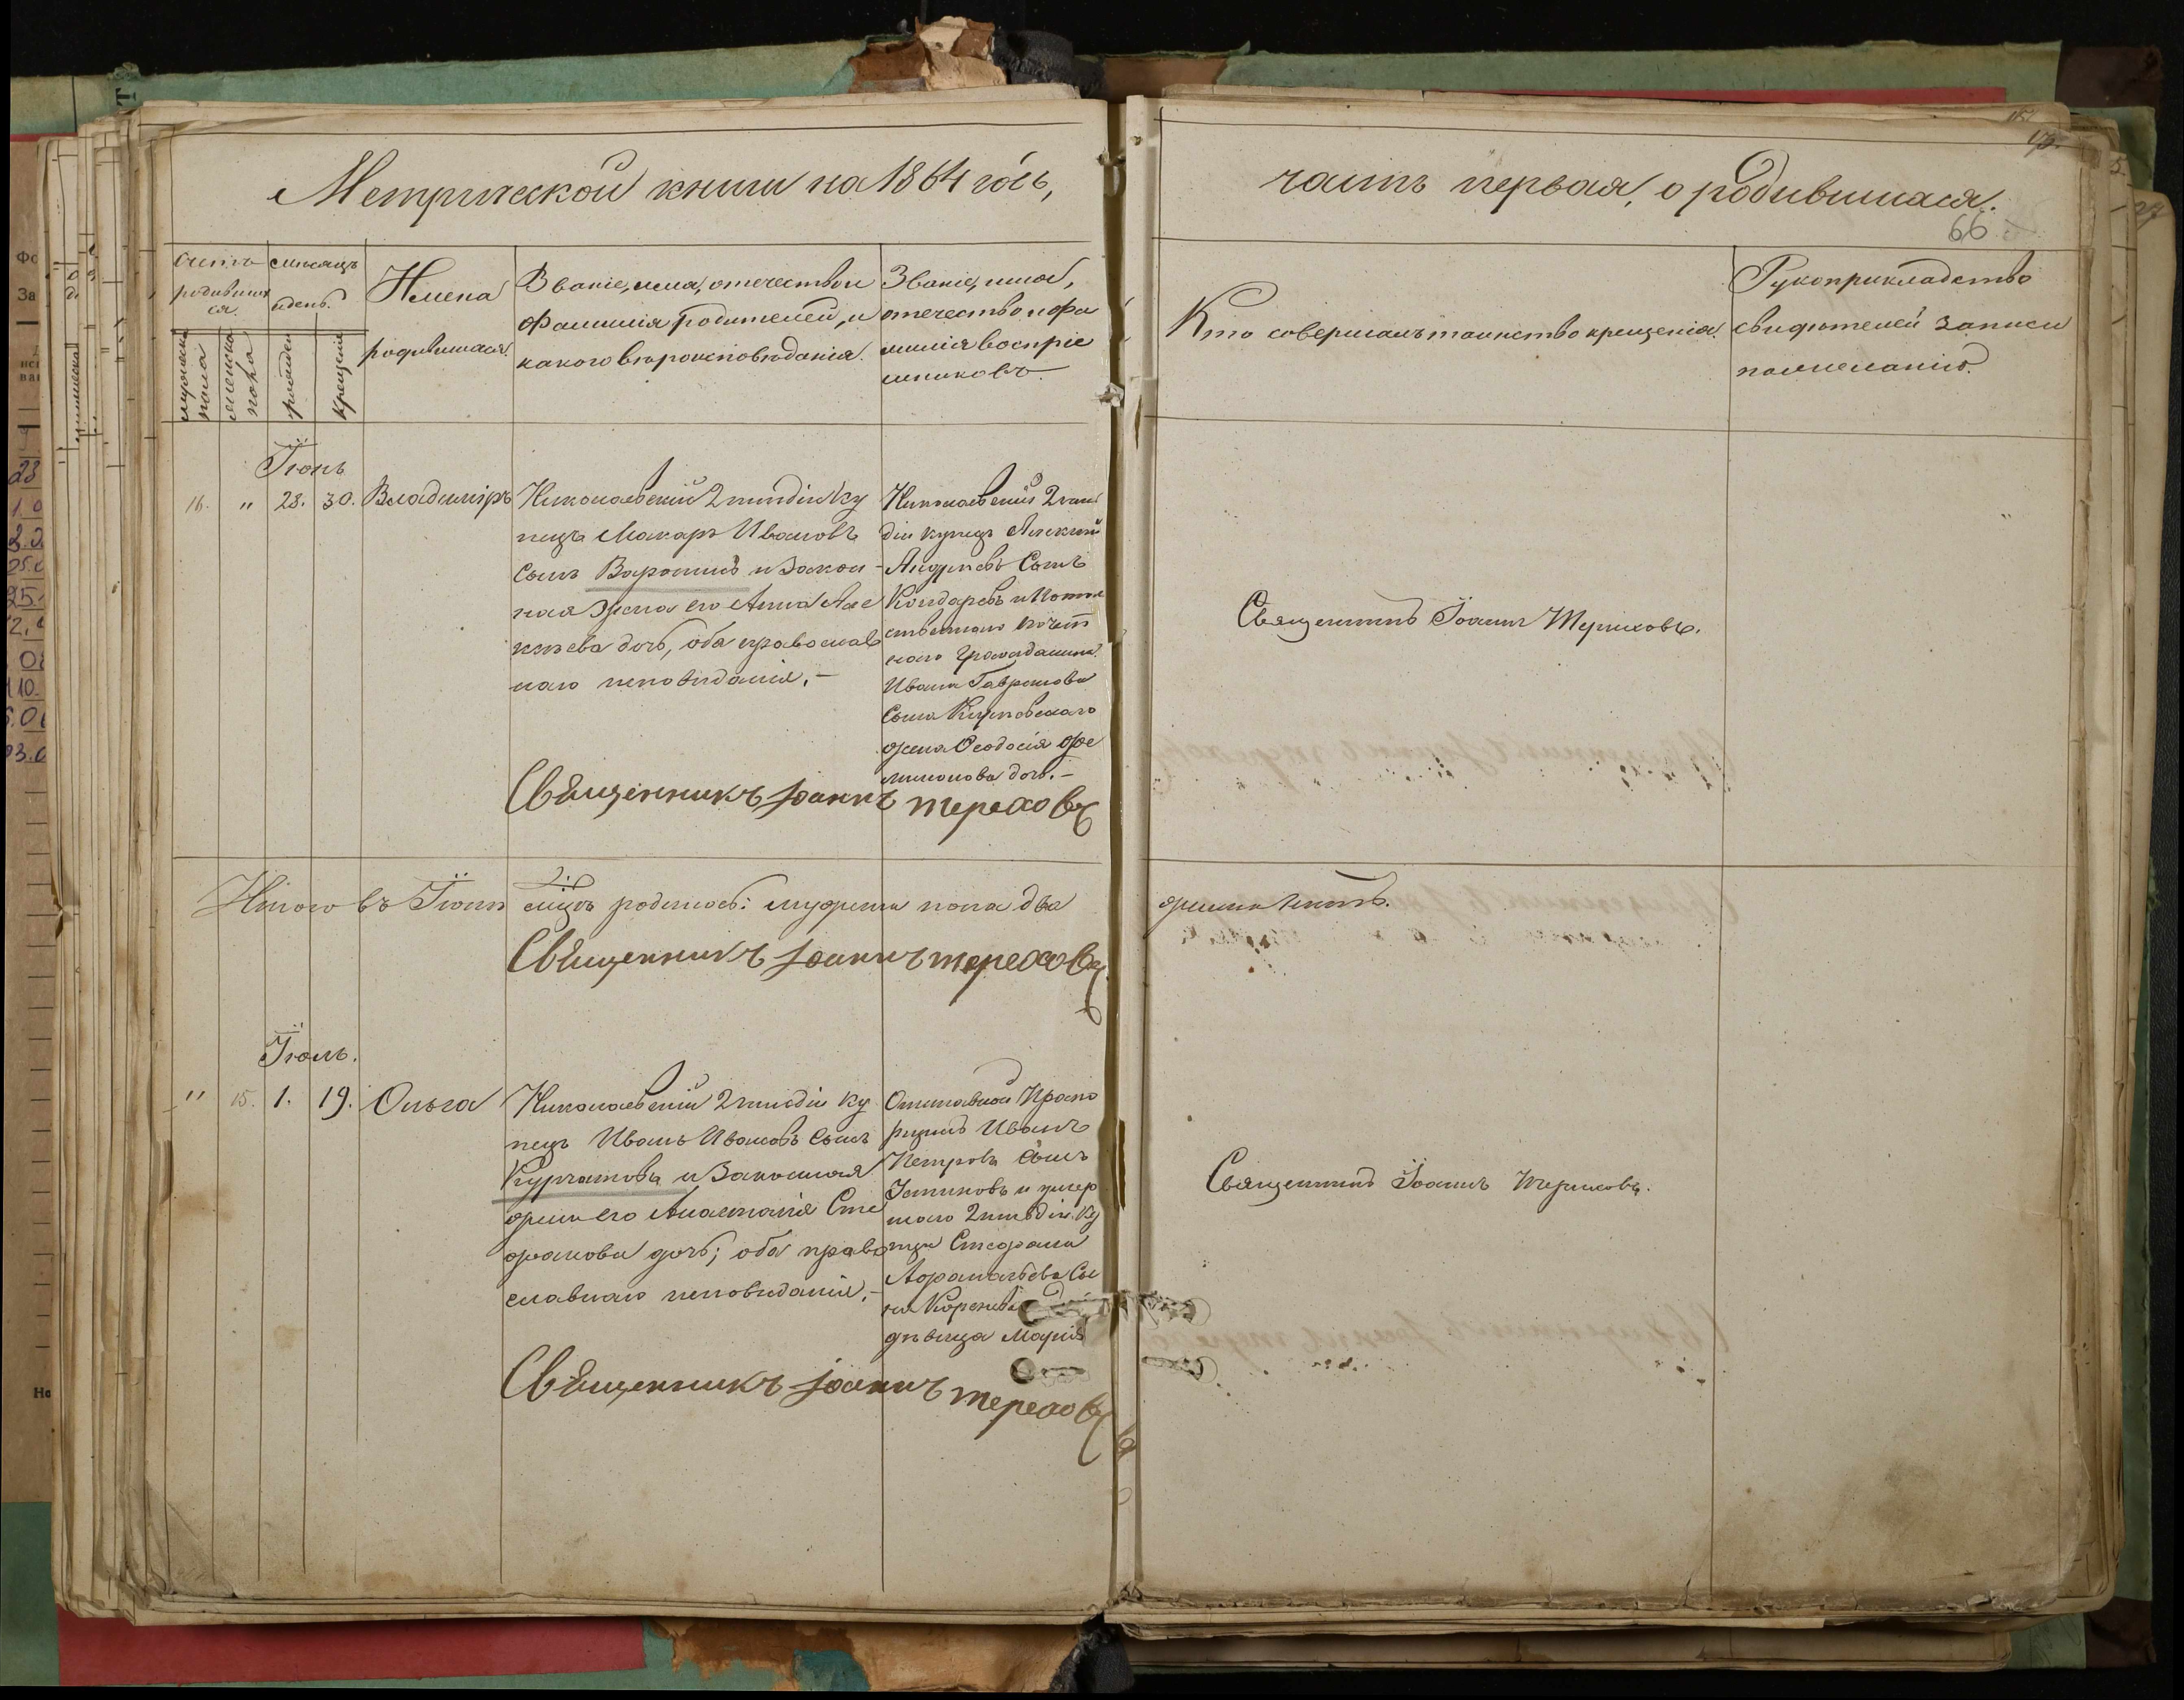 Метрической книги на 1864 годъ,
часть первая, о родившихся.
66
Счетъ родившихся.
мужеска пола
женска пола
Месяцъ и день.
рожден
крещенiя
Имена родившихся.
Званіе, имя, отечество и
фамилія родителей, и
какого вѣроисповѣданія.
Званіе, имя,
отечество и фа
милія воспріе
мниковъ.
Кто совершалъ таинство крещенія.
Рукоприкладство
свидѣтелей записи
по желанію.
Іюнь
16. " 28. 30. Владиміръ
Николаевскій 2 гильдіи ку
пецъ Макаръ Ивановъ
Сынъ Воронинъ и закон
ная жена его Анна Але
ксѣева дочь, оба православ
наго исповѣданія.
Николаевскій 2 гиль
діи купецъ Алексѣй
Андреевъ Сынъ
Кондаревъ и Потом
ственнаго почет
наго гражданина
Ивана Гаврилова
Сына
жена Ѳеодосія Фи
лимонова дочь.
Священникъ Іоаннъ Тереховъ
Священникъ Іоаннъ Тереховъ.
Итого въ Іюнѣ мцѣ родилось: мужеска пола два
женска нѣтъ.
Священникъ Іоаннъ Тереховъ
Іюль.
" 15. 1. 19. Ольга
Николаевскій 2 гильдіи ку
пецъ Иванъ Ивановъ Сынъ
Курчатовъ и законная
жена его Анастасія Сте
фанова дочь; оба право
славнаго исповѣданія.
Отставной Прапо
рщикъ Иванъ
Петровъ Сынъ
Устиновъ и умер
шаго 2 гильдіи Ку
пца Стефана
Афанасьева Сы
на
дѣвица Марія
Священникъ Іоаннъ Тереховъ
Священникъ Іоаннъ Тереховъ.